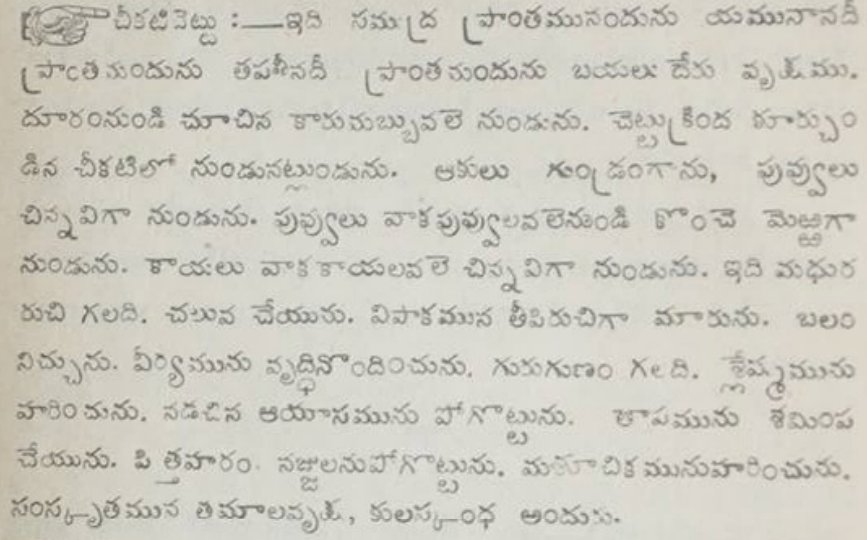 చీకటిచెట్టు :—ఇది సముద్ర ప్రాంతమునందును యమునానదీ
ప్రాంతమందును తపతీనదీ ప్రాంతమందును బయలు దేరు వృక్షము.
దూరంనుండి చూచిన కారుమబ్బువలె నుండును. చెట్టుక్రింద కూర్చుం
డిన చీకటిలో నుండునట్లుండును. ఆకులు గుండ్రంగాను, పువ్వులు
చిన్నవిగా నుండును. పువ్వులు వాకపువ్వులవలెనుండి కొంచె మెఱ్ఱగా
నుండును. కాయలు వాకకాయలవలె చిన్నవిగా నుండును. ఇది మధుర
రుచి గలది. చలువ చేయును. విపాకమున తీపిరుచిగా మారును. బలం
నిచ్చును. వీర్యమును వృద్ధినొందించును. గురుగుణం గలది. శ్లేష్మమును
హరించును. నడచిన ఆయాసమును పోగొట్టును. తాపమును శమింప
చేయును. పిత్తహరం. సజ్జులనుపోగొట్టును. మసూచికమునుహరించును.
సంస్కృతమున తమాలవృక్ష, కులస్కంధ అందురు.